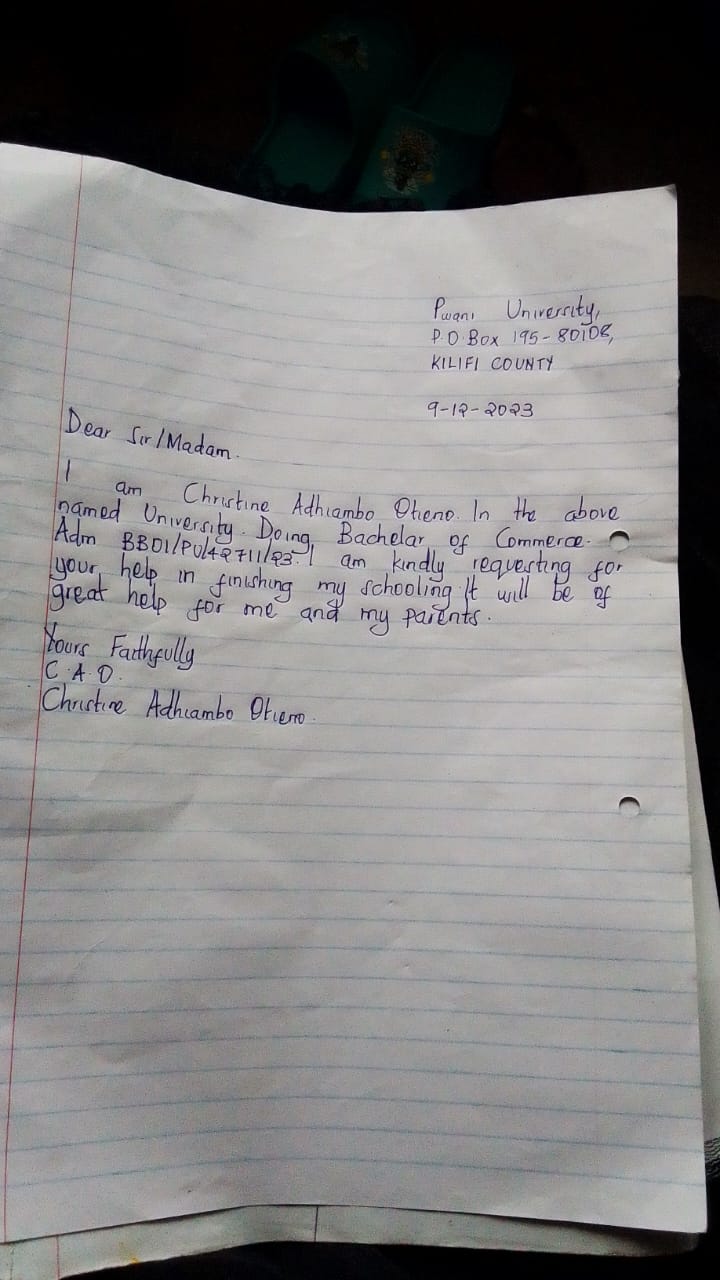 Pwani University,
P.O Box 195-80108,
KILIFI COUNTY
9-12-2023
Dear Sir/Madam.
I
am Christine Adhiambo Otieno. In the above
named University. Doing Bachelar of Commerce.
Adm BB01/PU/42711/23. I am kindly requesting for
your help in finishing my schooling. It will be of
great help for me and my parents.
Yours Faithfully
C.A.O.
Christine Adhiambo Otieno.